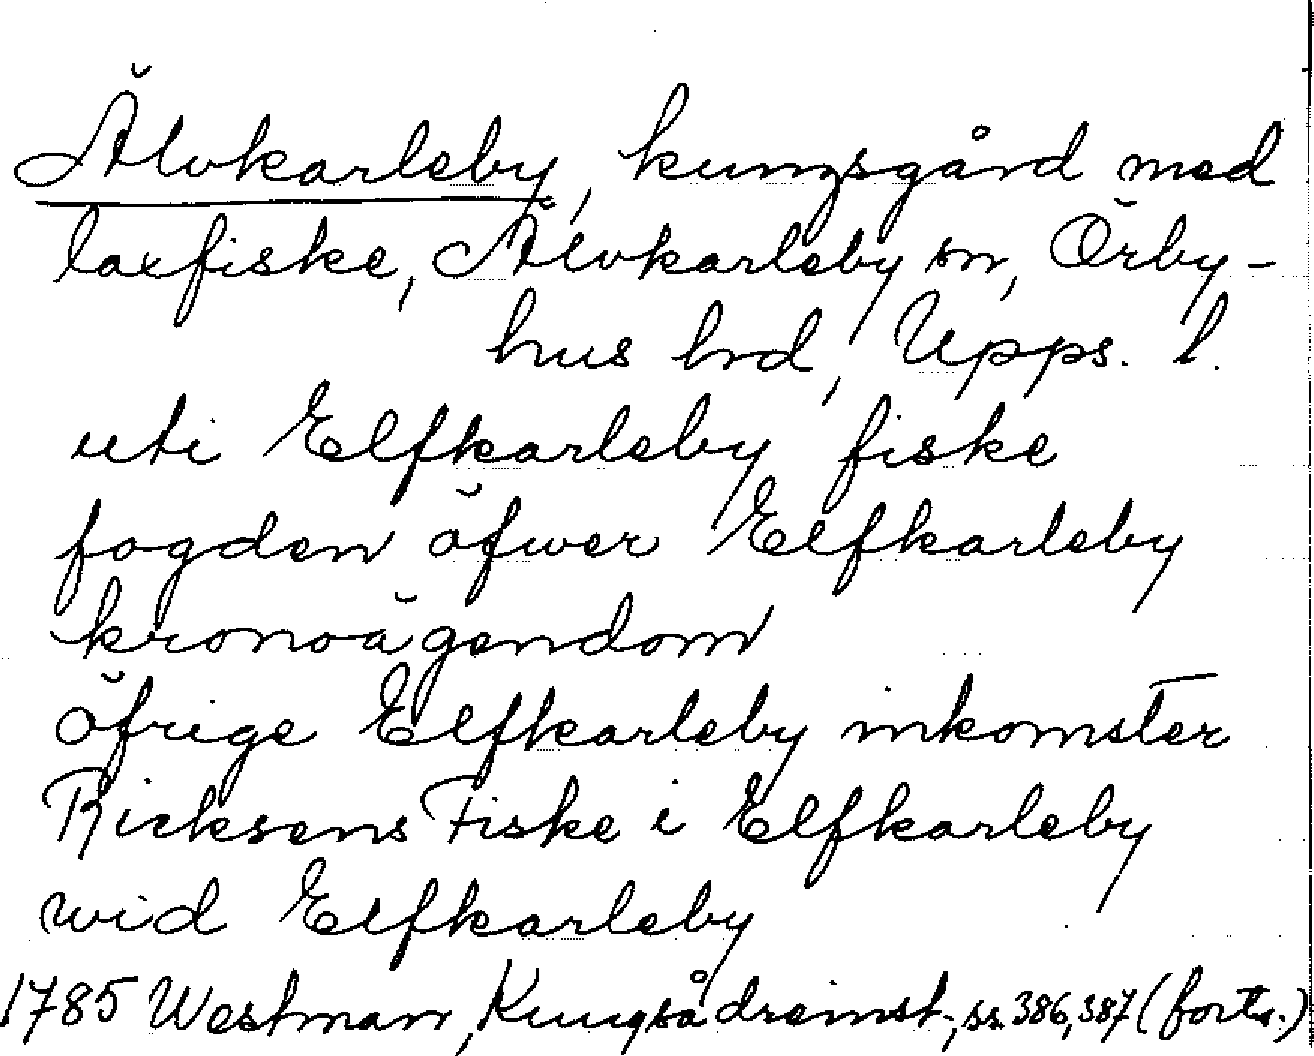 Älvkarleby, kungsgård med
laxfiske, Älvkarleby sn, Örby-
hus hrd, Upps. l.
uti Elfkarleby fiske
fogden öfwer Elfkarleby
kronoägendom
öfrige Elfkarleby inkomster
Ricksens Fiske i Elfkarleby
wid Elfkarleby
1785 Westman, Kungsådreinst., ss. 386, 387 (forts.)